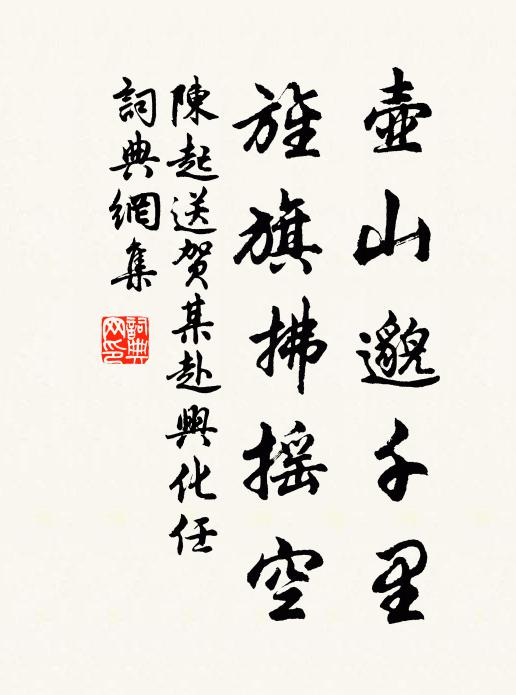 壺山邈千里
旌旗拂摇空
陳起送贺某赴興化任
詞典網集
詞典网印